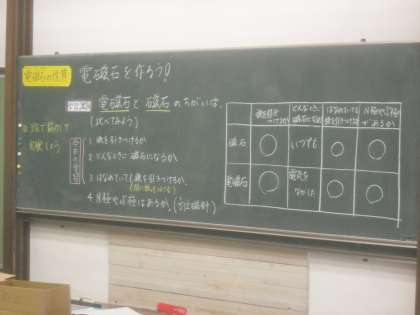 電磁石の性質
電磁石を作ろう!
電磁石と磁石のちがいは、
(比べてみよう)
1. 鉄を引きつけるか
2. どんなときに磁石になるか
3. はなれていても鉄を引きつけるか。
4. N極やS極はあるか。(方位磁針)
鉄を引きつけるか
どんなときに磁石になるか
はなれていても鉄を引きつけるか
N極やS極があるか
磁石 ○ いつでも ○ ○
電磁石 ○ 電流を ○ ○